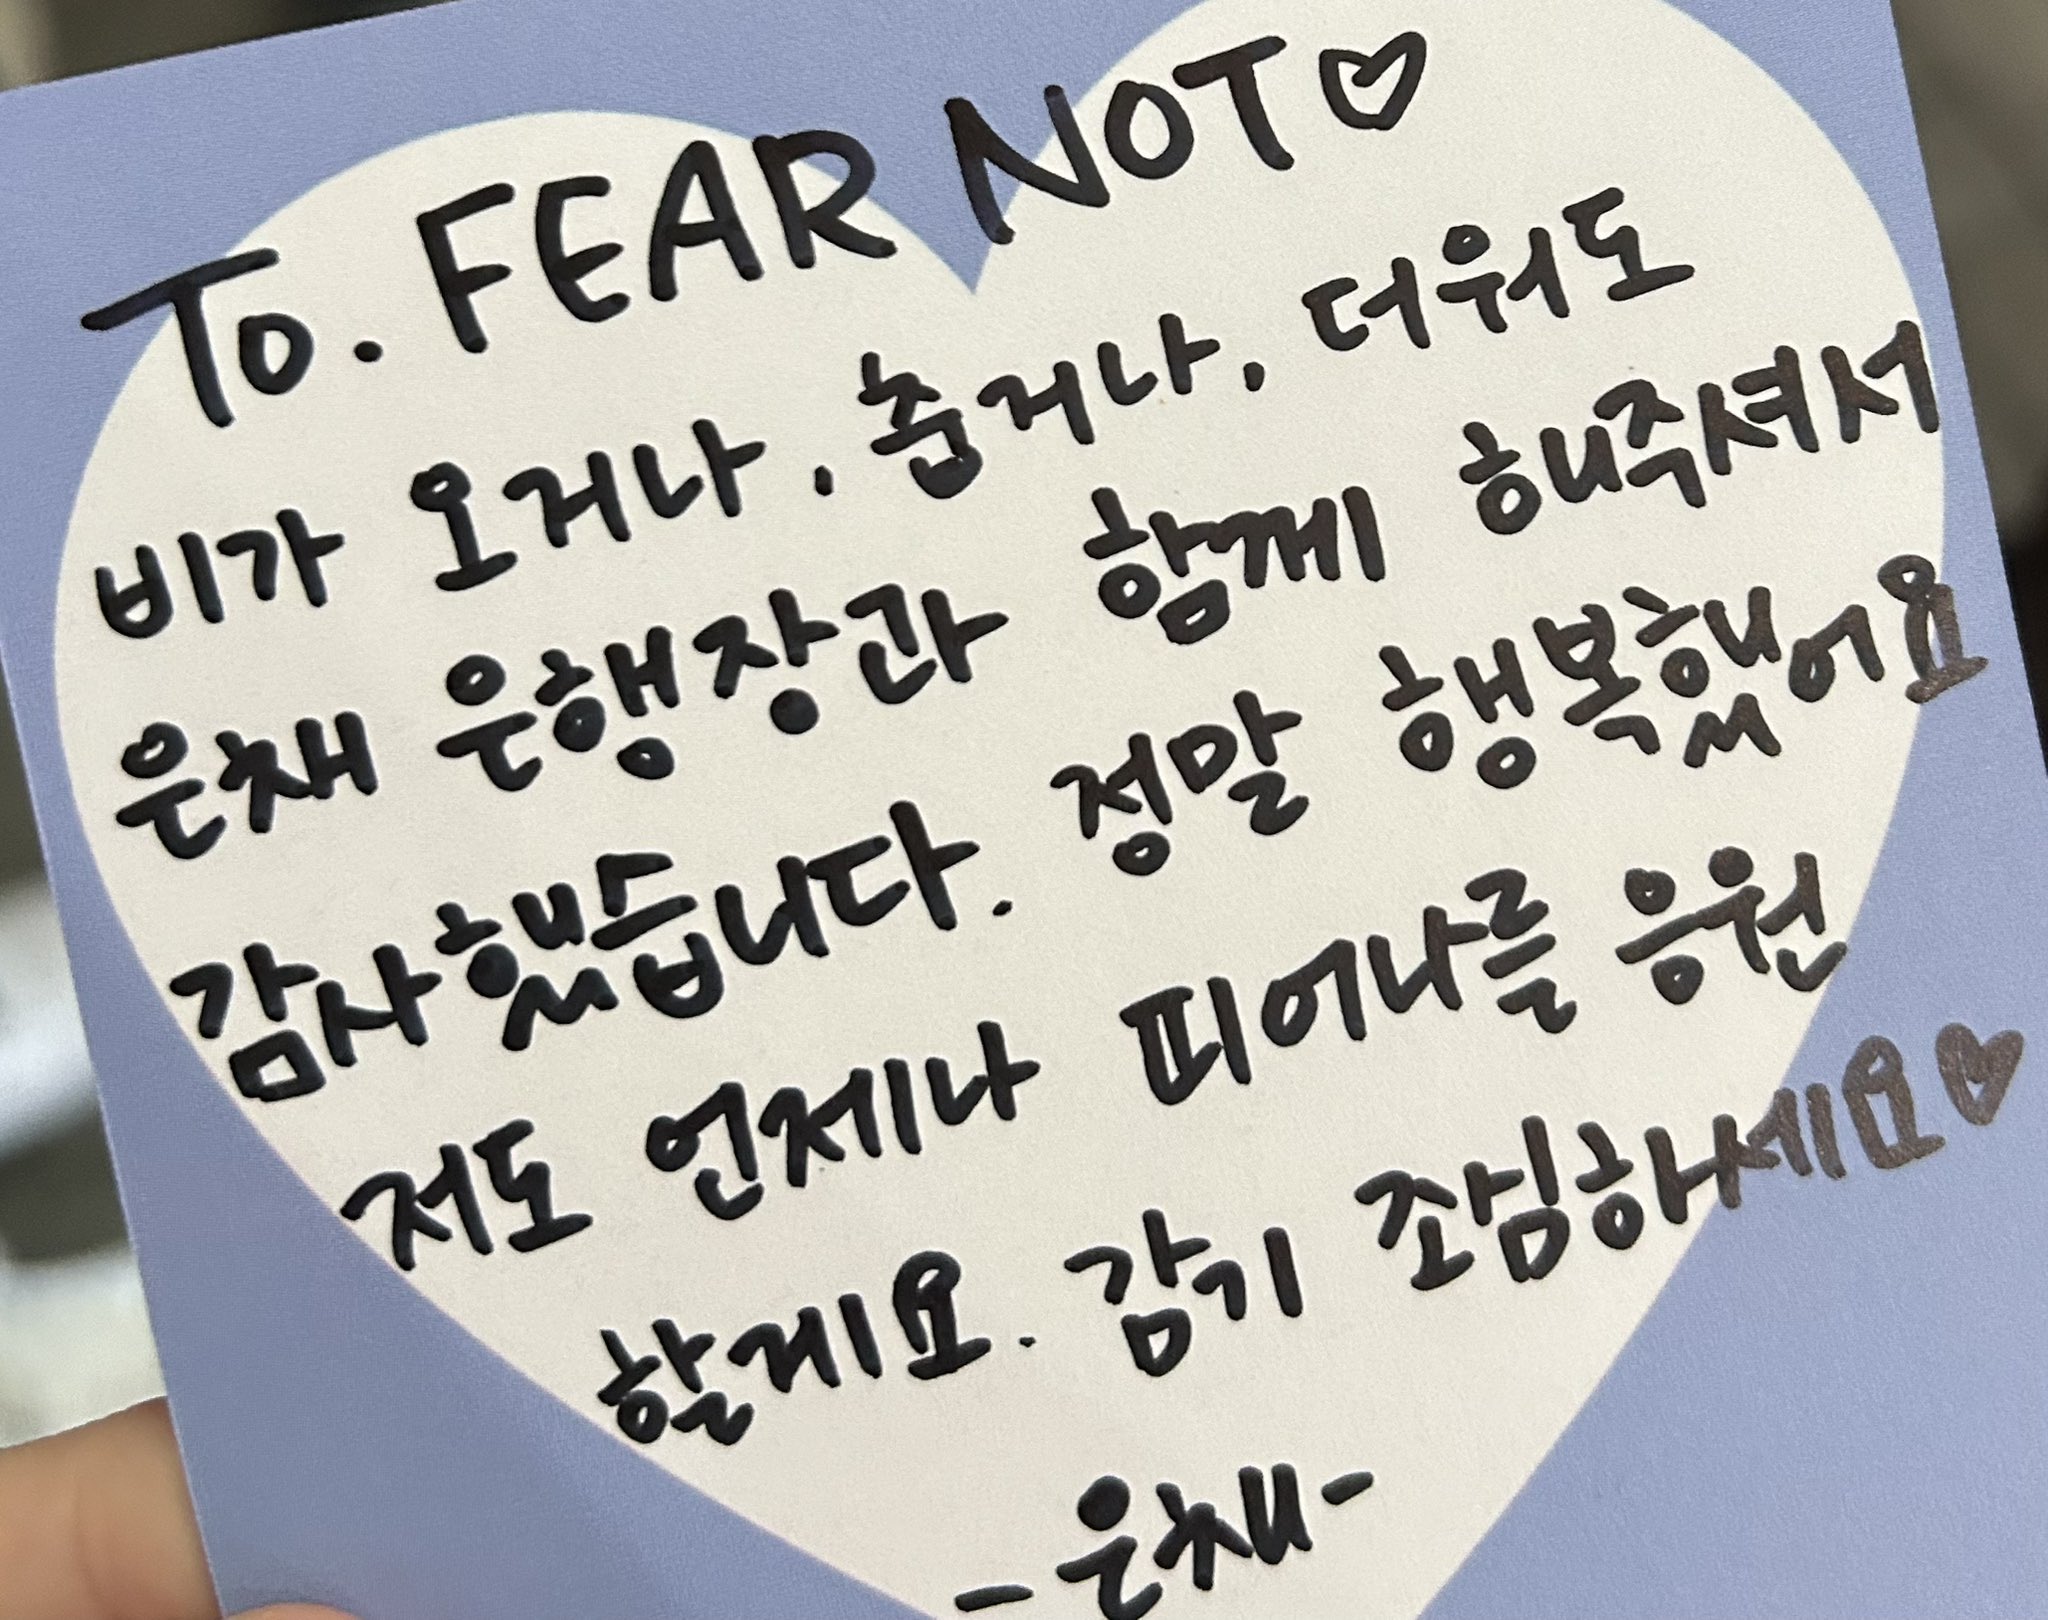 To. FEAR NOT♡
비가 오거나, 춥거나, 더워도
은채 은행장과 함께 해주셔서
감사했습니다. 정말 행복했어요
저도 언제나 피어나를 응원
할게요. 감기 조심하세요♡
-은채-